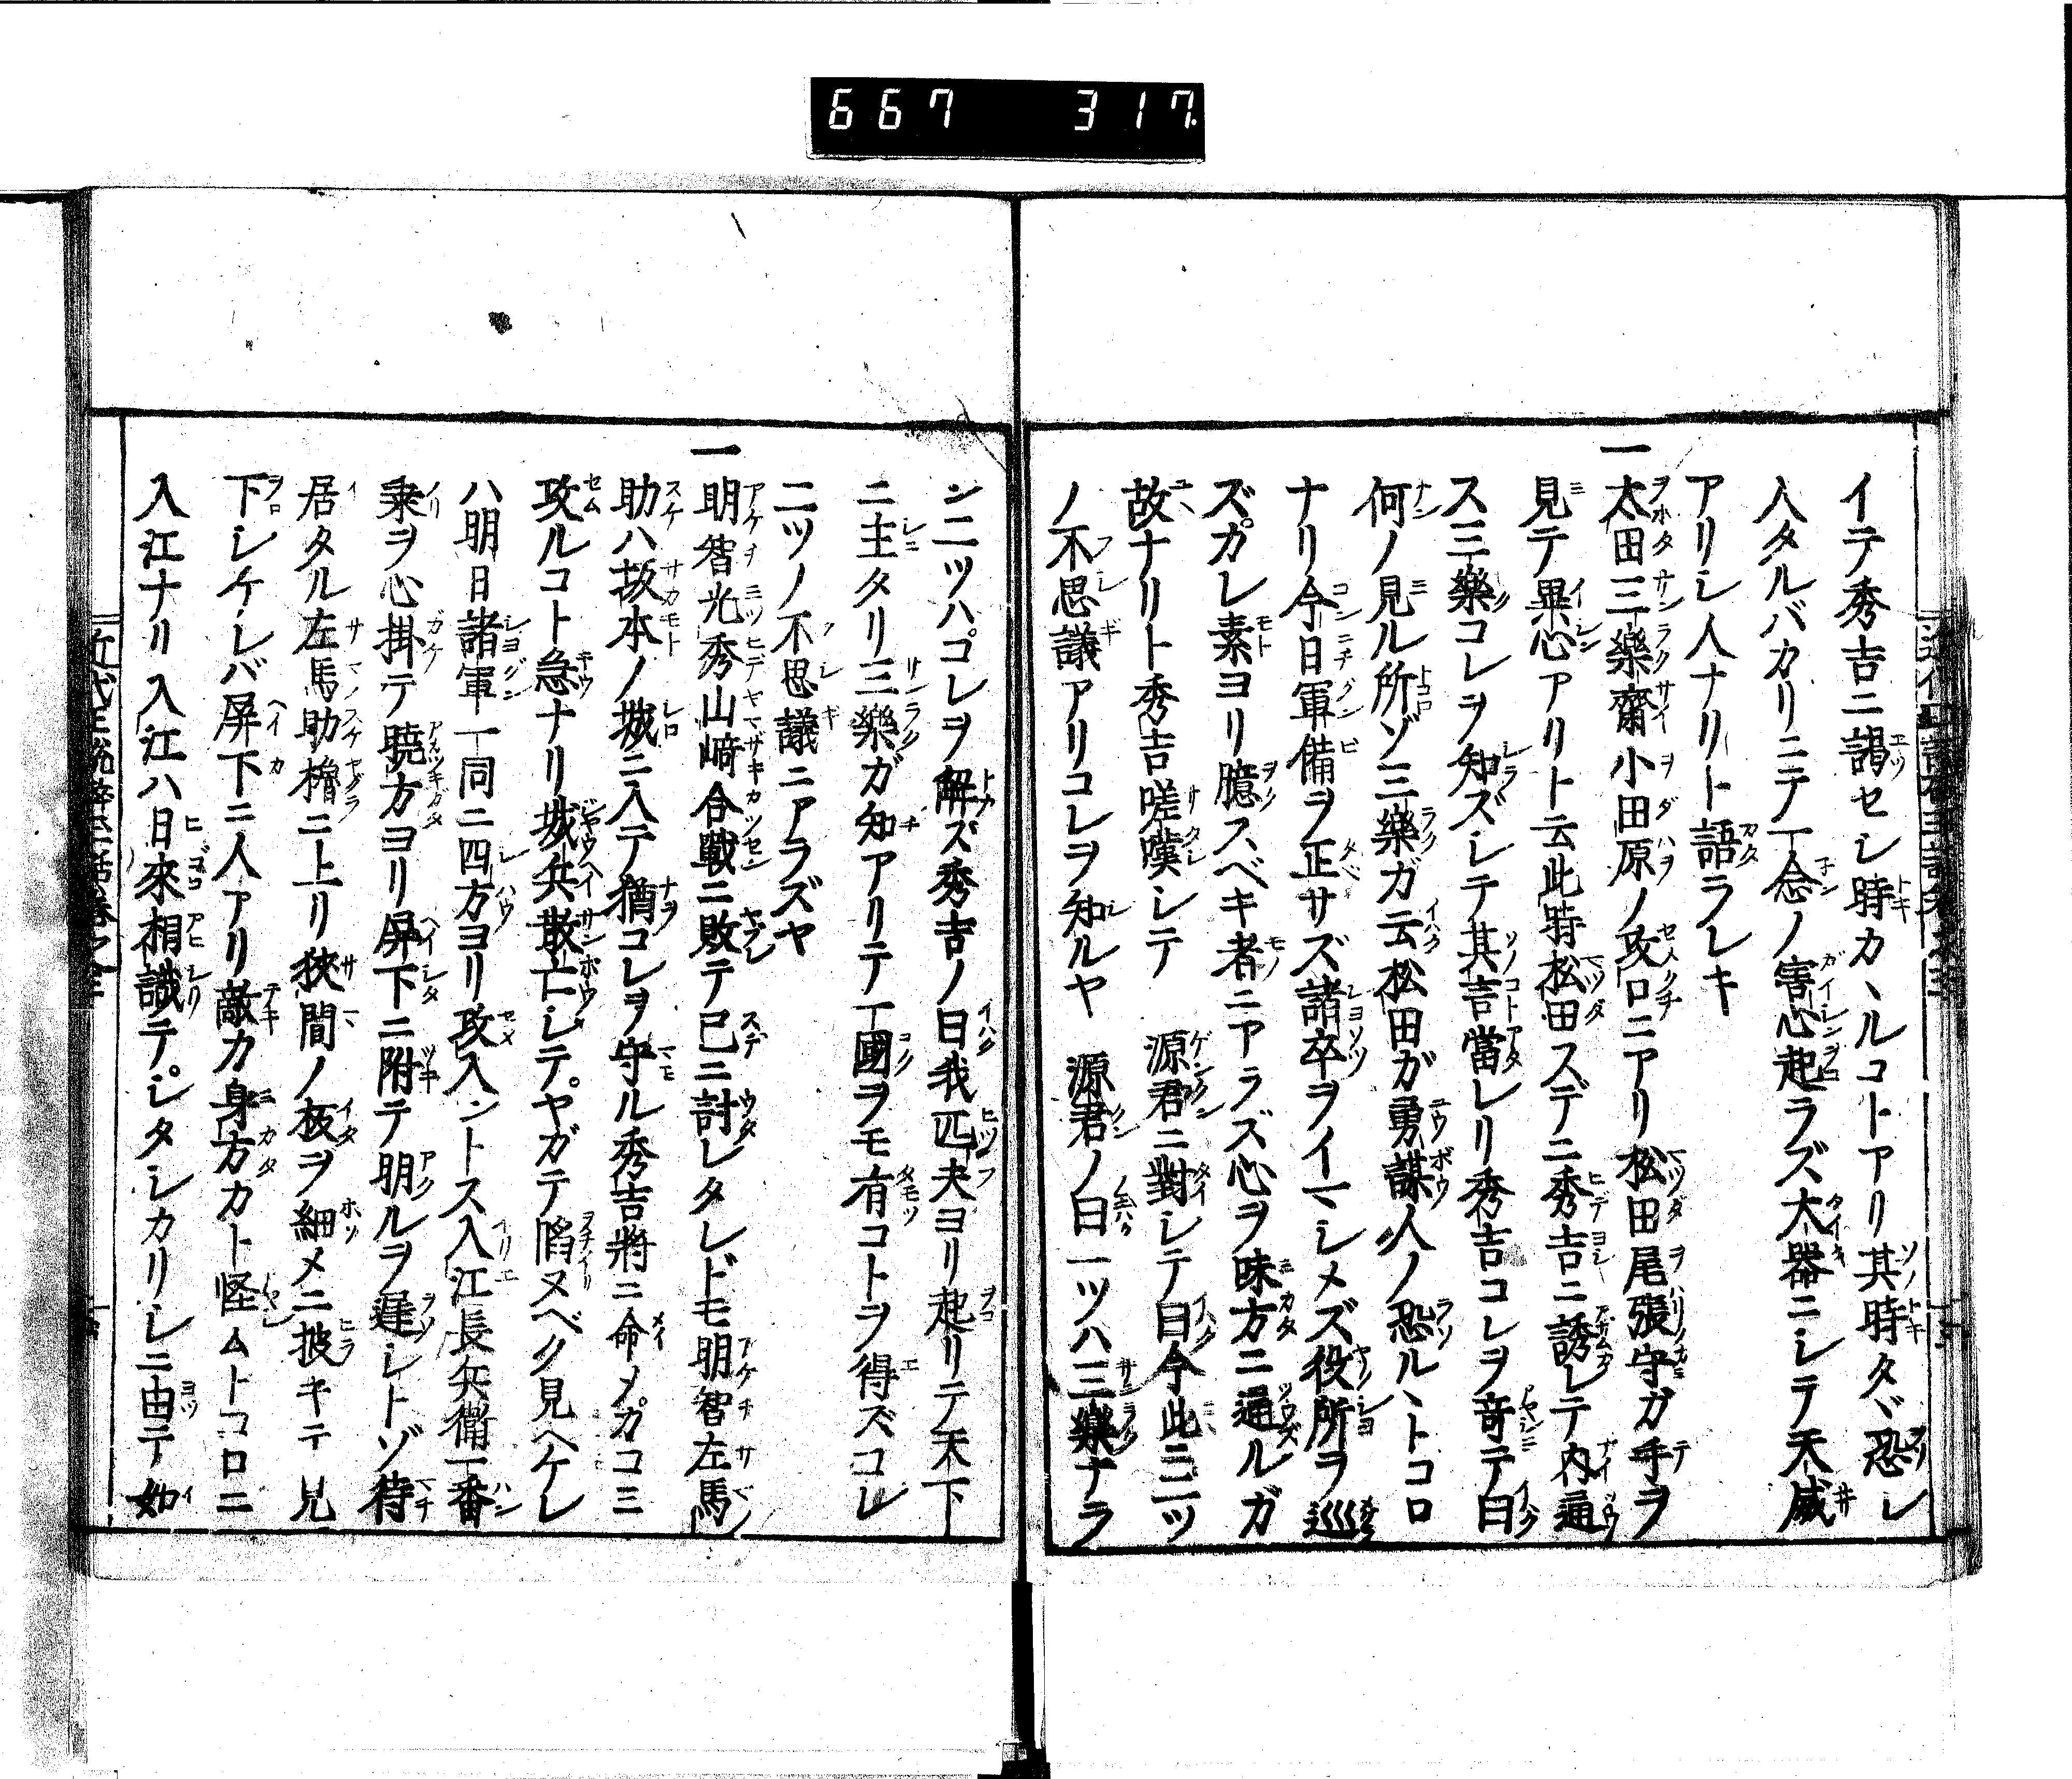 667 317.
イテ秀吉ニ謁セシ時カヽルコトアリ其時タヾ恐レ
入タルバカリニテ一念ノ害心起ラズ大器ニシテ天威
アリシ人ナリト語ラレキ
一太田三樂齋小田原ノ攻口ニアリ松田尾張守ガ手ヲ
見テ異心アリト云此時松田ステニ秀吉ニ誘レテ内通
ス三樂コレヲ知ズシテ其言當レリ秀吉コレヲ竒テ曰
何ノ見ル所ゾ三樂ガ云松田ガ勇謀人ノ恐ルヽトコロ
ナリ今日軍備ヲ正サズ諸卒ヲイマシメズ役所ヲ巡
ズカレ素ヨリ臆スベキ者ニアラズ心ヲ味方ニ通ルガ
故ナリト秀吉嗟嘆シテ 源君ニ對シテ曰今此二ツ
ノ不思議アリコレヲ知ルヤ 源君ノ曰一ツハ三樂ナラ
ン二ツハコレヲ解ズ秀吉ノ曰我匹夫ヨリ起リテ天下
ニ主タリ三樂ガ知アリテ一國ヲモ有コトヲ得ズコレ
ニツノ不思議ニアラズヤ
一明智光秀山﨑合戰ニ敗テ已ニ討レタレドモ明智左馬
助ハ坂本ノ城ニ入テ猶コレヲ守ル秀吉將ニ命メカコミ
攻ルコト急ナリ城兵散亡シテヤガテ陷ヌベク見ヘケレ
ハ明日諸軍一同ニ四方ヨリ攻入ントス入江長兵衞一番
乗ヲ心掛テ曉方ヨリ屏下ニ附テ明ルヲ遲シトゾ待
居タル左馬助櫓ニ上リ狹間ノ板ヲ細メニ披キテ見
下シケレバ屏下ニ人アリ敵カ身方カト怪ムトコロニ
入江ナリ入江ハ日來相識テシタシカリシニ由テ如